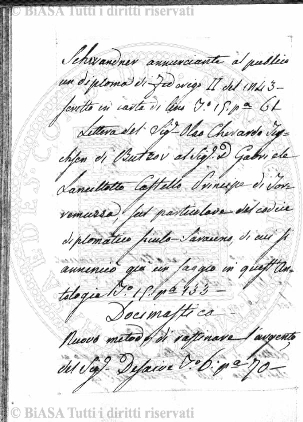 © BiASA Tutti i diritti riservati
Schwandner annunciante al publico
un diploma di Federigo II del 1243
scritto in carta di lino T.º 15. pª 61
Lettera del Sig.r Olao Gherardo Tych-
sen di Butzov al Sig.r D. Gabriele
Lancellotto Castello Principe di Tor-
remuzza, sul particolare del codice
diplomatico siculo-Saraceno, di cui si
annunciò già un saggio in quest'An-
tologia T.º 15. pª 433
Docimastica
Nuovo metodo di raffinare l'argento
del Sig.r T.º 6. pª 70
© BiASA Tutti i diritti riservati